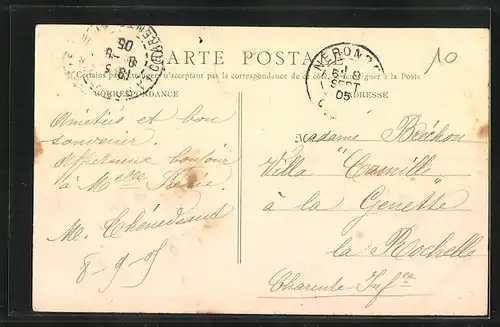 CARTE POSTALE
Certains pays étrangers n'acceptent pas la correspondance de ce côté, se renseigner à la Poste
CORRESPONDANCE
ADRESSE
10
NÉRONDE
8
SEPT
05
Amitiés et bon
souvenir.
Affectueux bonjour
à Melle
M.
8-9-05
Madame Béréchon
Villa "Camille"
à la Genette
la Rochelle
Charente Infre